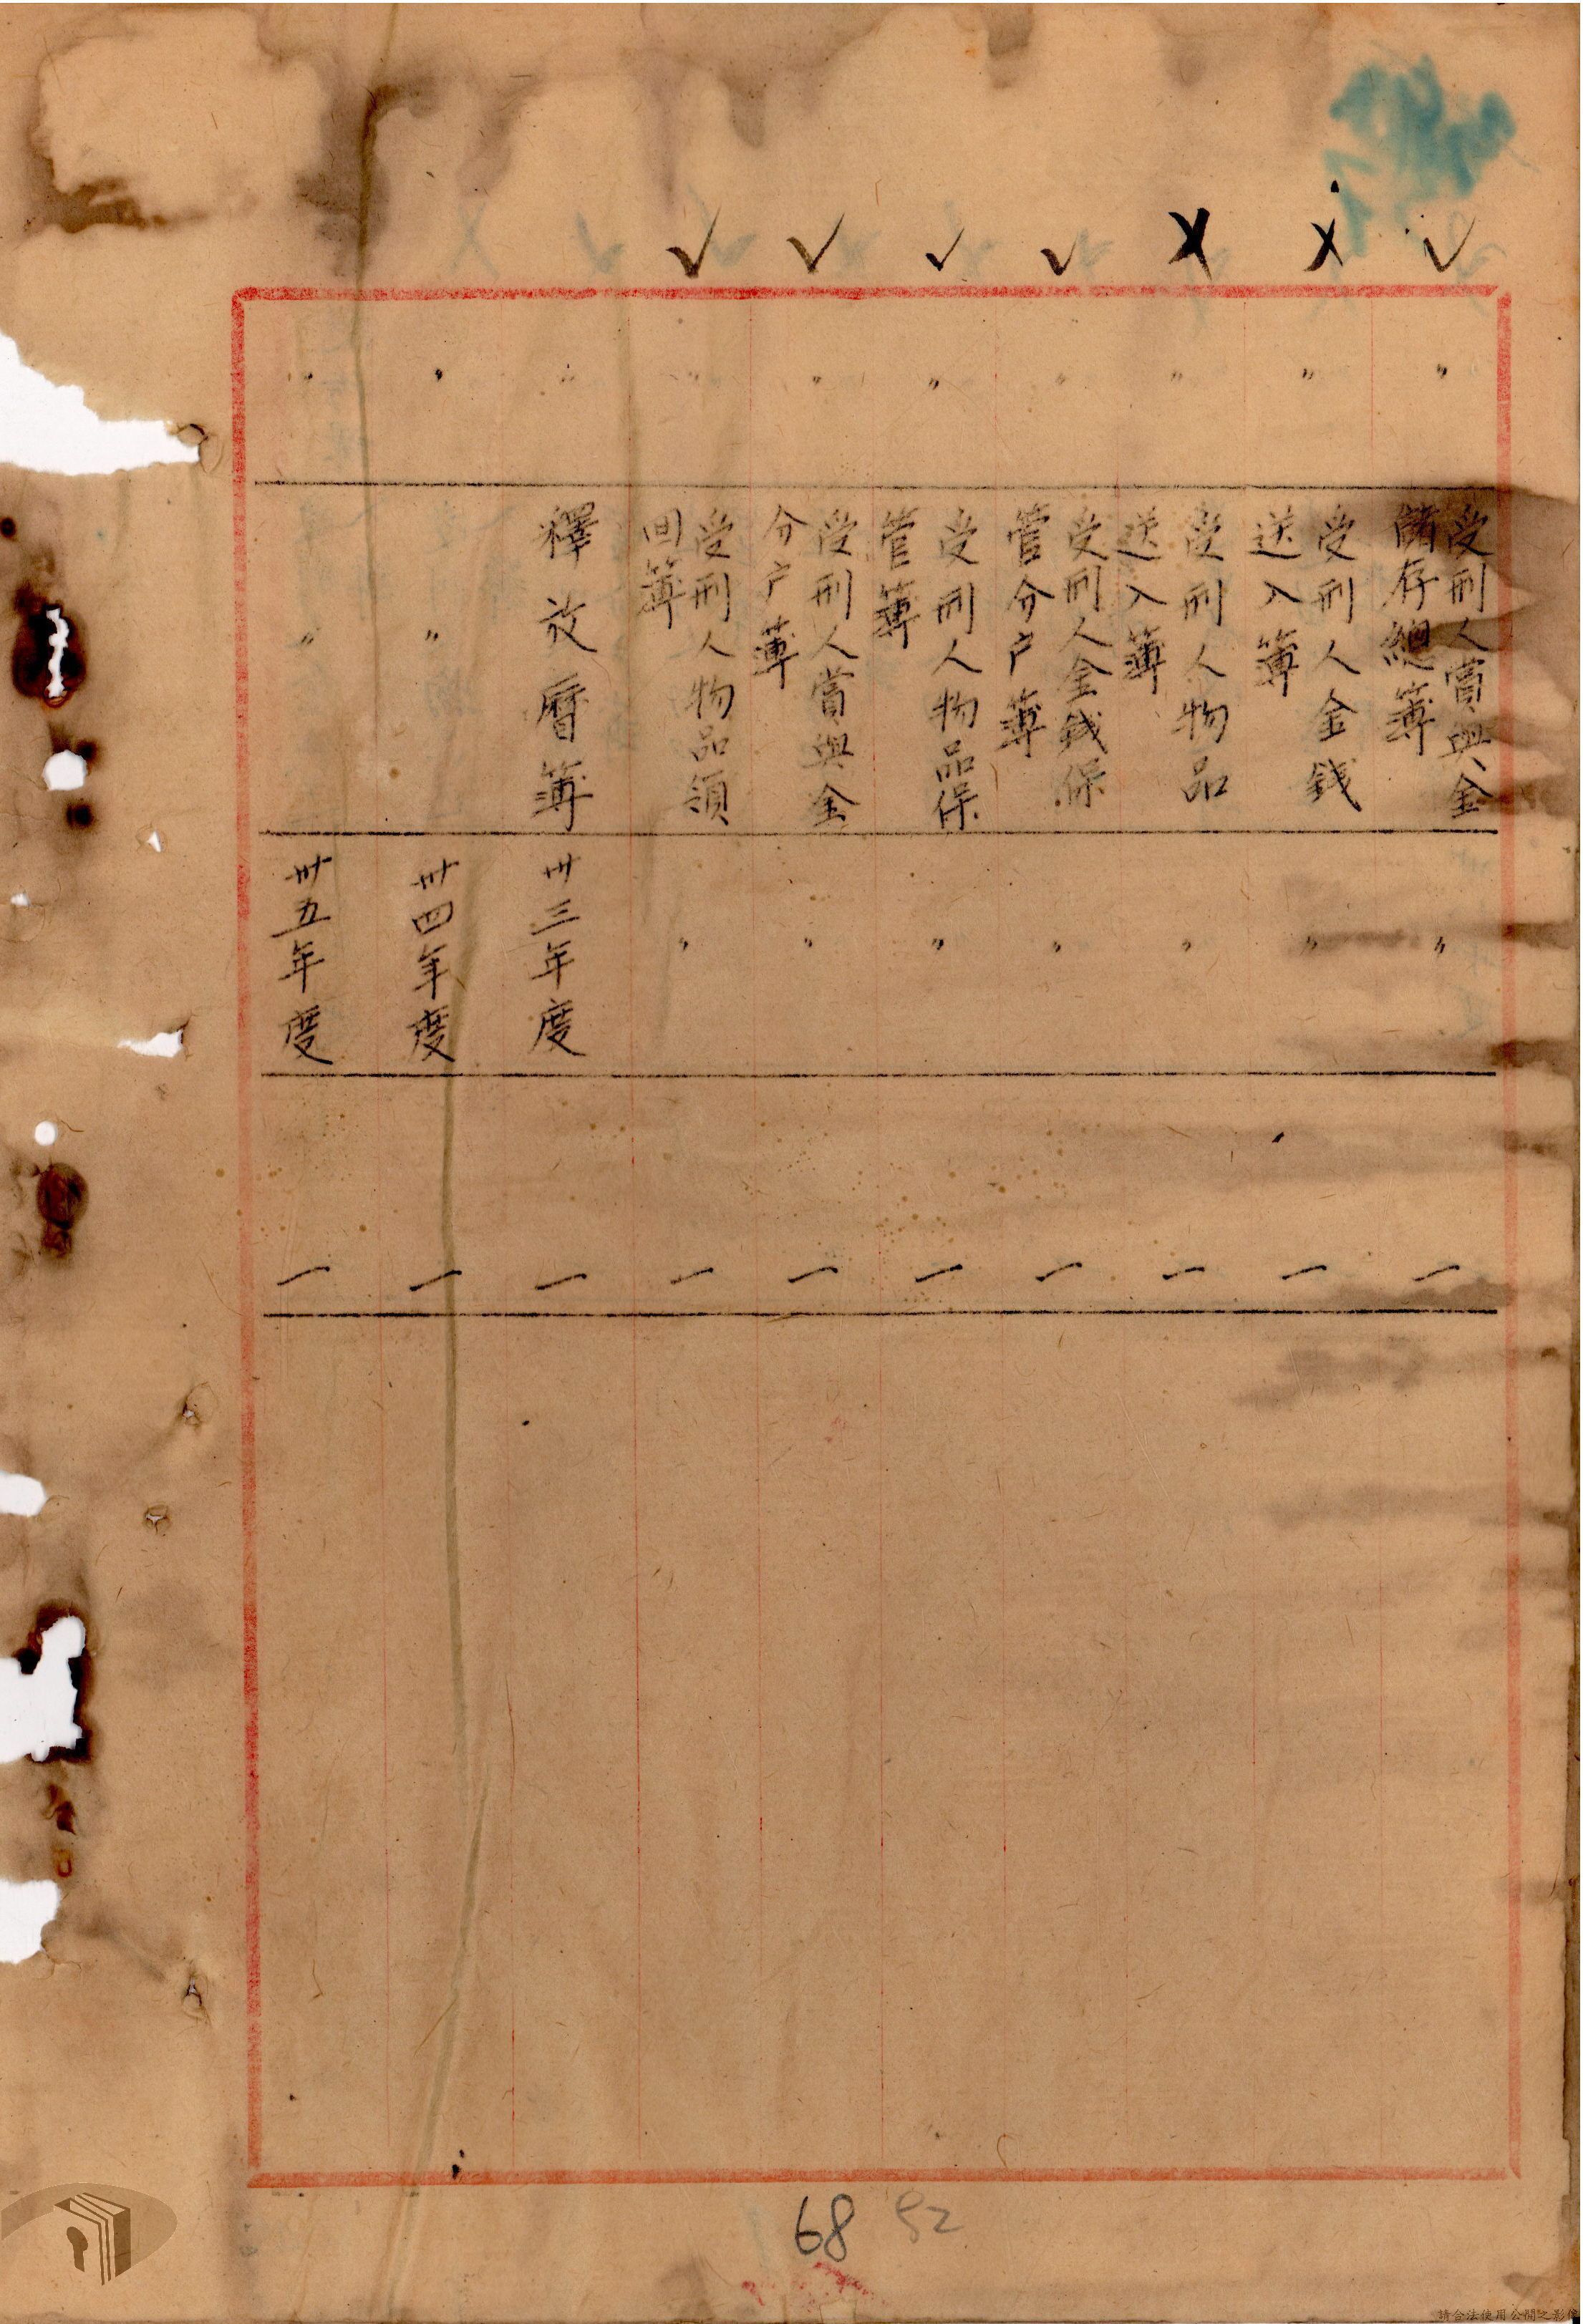 ✓
〃
受刑人賞與金
儲存總簿
〃
一
X
〃
受刑人金錢
送入簿
〃
一
X
〃
受刑人物品
送入簿
〃
一
✓
〃
受刑人金錢保
管分户簿
〃
一
✓
〃
受刑人物品保
管簿
〃
一
✓
〃
受刑人賞與金
分户簿
〃
一
✓
〃
受刑人物品領
回簿
〃
一
〃
釋放曆簿
卅三年度
一
〃
〃
卅四年度
一
〃
〃
卅五年度
一
68
請合法使用公開之影像